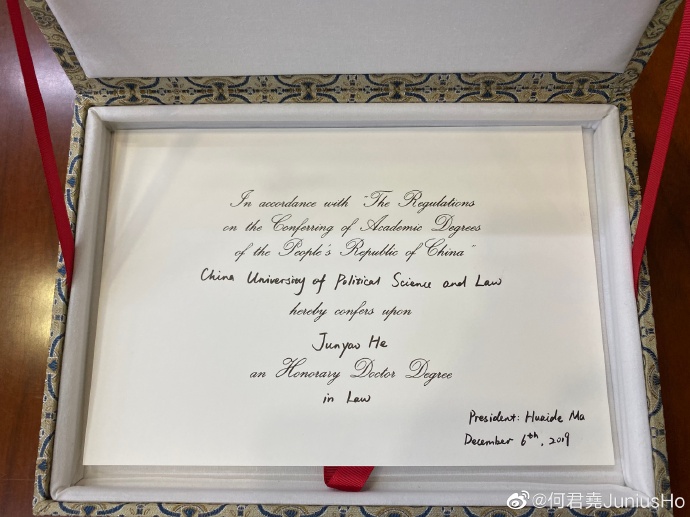 In accordance with "The Regulations
on the Conferring of Academic Degrees
of the People's Republic of China"
China University of Political Science and Law
hereby confers upon
Junyao He
an Honorary Doctor Degree
in Law
President: Huaide Ma
December 6th, 2019
@何君堯JuniusHo